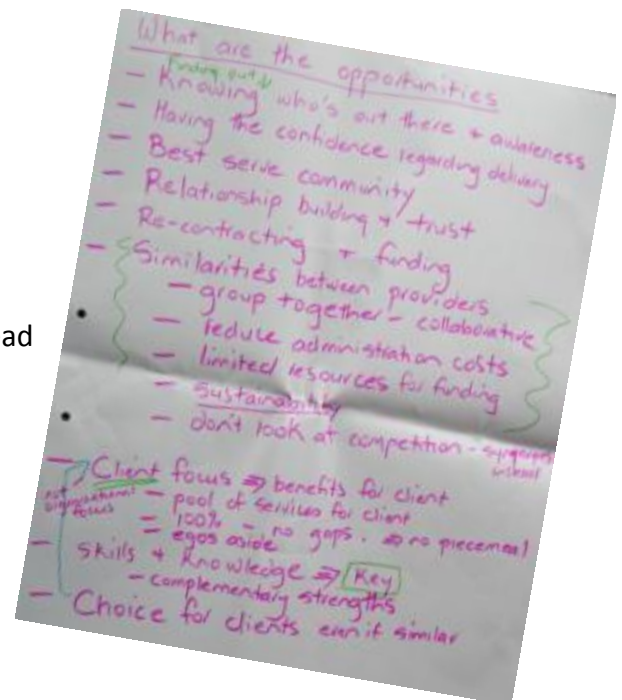 What are the opportunities
Finding out
- Knowing who's out there + awareness
- Having the confidence regarding delivery
- Best serve community
- Relationship building + trust
- Re-contracting + funding
- Similarities between providers
- group together - collaborative
- reduce administration costs
- limited resources for funding
- Sustainability
- don't look at competition - synergies
instead
- Client focus ⇒ benefits for client
not
organisational
focus
- pool of services for client
- 100% - no gaps. ⇒ no piecemeal
- egos aside
- Skills + Knowledge ⇒ Key
- complementary strengths
- Choice for clients even if similar
ad